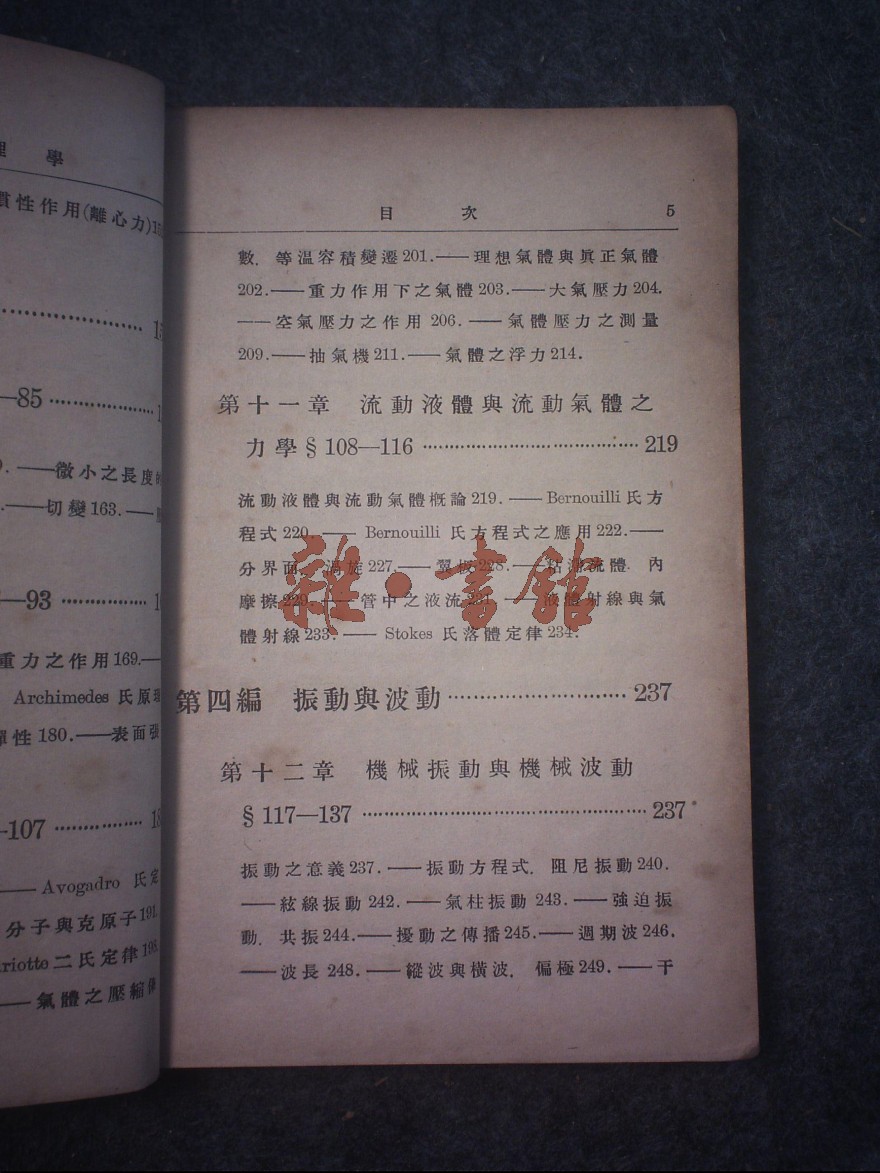 理 學
慣性作用(離心力)
—85
微小之長度
——切變163.——
—93
重力之作用169.—
Archimedes 氏原理
彈性180.——表面張
—107
——Avogadro 氏定
分子與克原子191.
riotte二氏定律196.
——氣體之壓縮係
目 次 5
數. 等温容積變遷201.——理想氣體與眞正氣體
202.——重力作用下之氣體203.——大氣壓力204.
——空氣壓力之作用 206.——氣體壓力之測量
209.——抽氣機211.——氣體之浮力214.
第十一章 流動液體與流動氣體之
力學 § 108—116 ⋯⋯⋯⋯⋯⋯⋯⋯ 219
流動液體與流動氣體槪論219.——Bernouilli 氏方
程式220.——Bernouilli 氏方程式之應用222.——
分界面. 渦旋227.——翼 228.——粘滯流體. 內
摩擦229.——管中之液流231.——液體射線與氣
體射線233.——Stokes 氏落體定律234.
雜·書館
第四編 振動與波動⋯⋯⋯⋯⋯⋯⋯ 237
第十二章 機械振動與機械波動
§ 117—137 ⋯⋯⋯⋯⋯⋯⋯⋯⋯⋯ 237
振動之意義237.——振動方程式. 阻尼振動240.
——絃線振動242.——氣柱振動243.——強迫振
動. 共振244.——擾動之傳播245.——週期波246.
——波長248.——縱波與橫波. 偏極249.——干